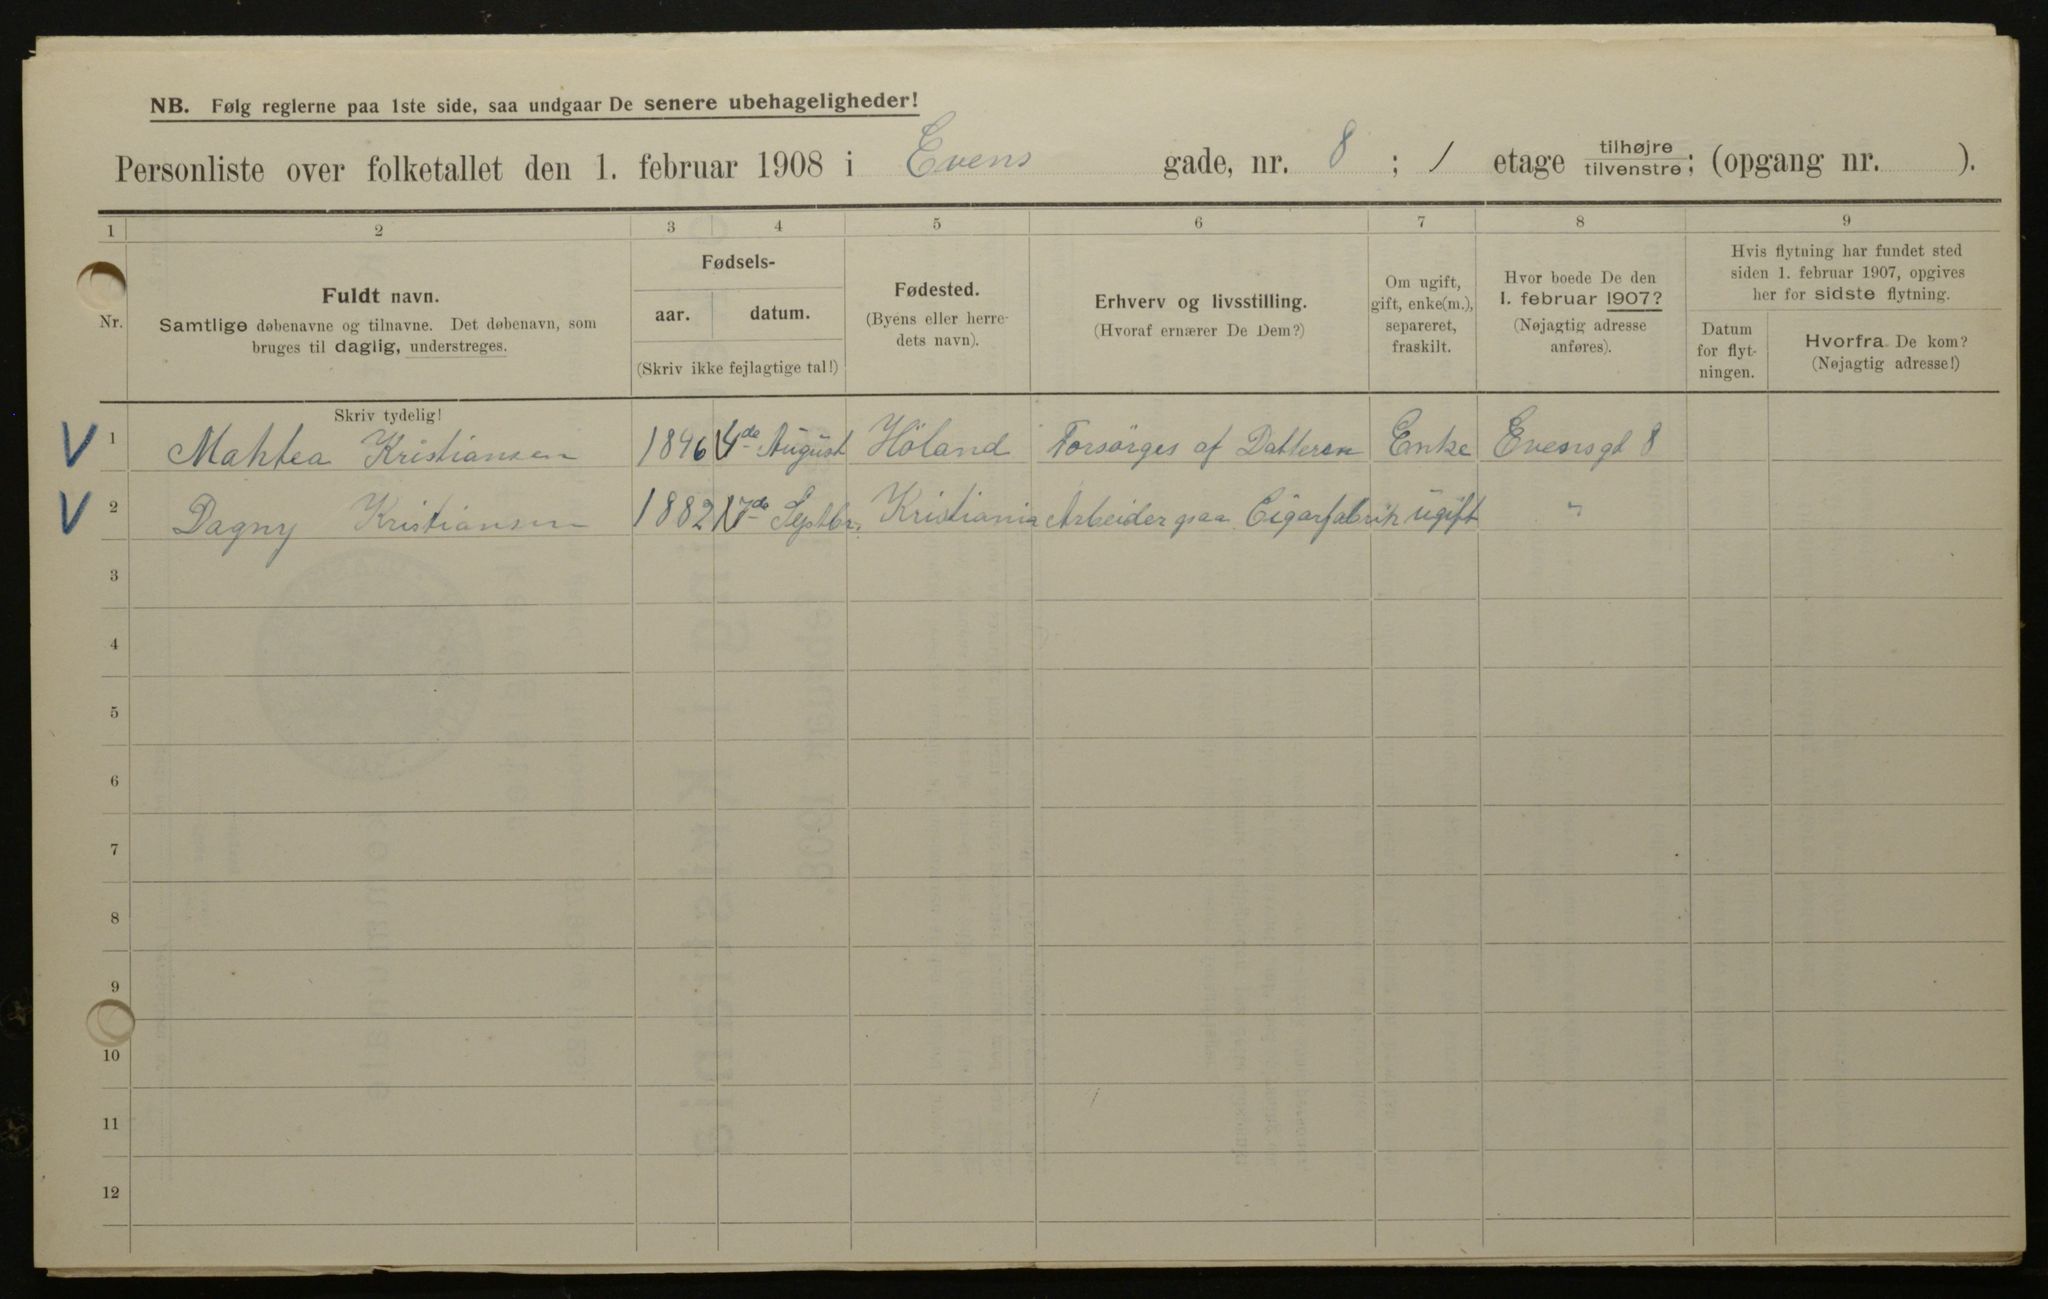 NB. Følg reglerne paa 1ste side, saa undgaar De senere ubehageligheder!
Personliste over folketallet den 1. februar 1908 i Evens gade, nr. 8 ; 1 etage tilhøjre tilvenstre; (opgang nr. ).
1 2 3 4 5 6 7 8 9
Nr.
Fuldt navn.
Samtlige døbenavne og tilnavne. Det døbenavn, som
bruges til daglig, understreges.
Fødsels-
aar. datum.
(Skriv ikke fejlagtige tal!)
Fødested.
(Byens eller herre-
dets navn).
Erhverv og livsstilling.
(Hvoraf ernærer De Dem?)
Om ugift,
gift, enke(m.),
separeret,
fraskilt.
Hvor boede De den
1. februar 1907?
(Nøjagtig adresse
anføres).
Hvis flytning har fundet sted
siden 1. februar 1907, opgives
her for sidste flytning.
Datum
for flyt-
ningen.
Hvorfra De kom?
(Nøjagtig adresse!)
Skriv tydelig!
V 1 Mahtea Kristiansen 1846 4de August Höland Forsörges af Datteren Enke Evensgd 8
V 2 Dagny Kristiansen 1882 17de Septbr. Kristiania Arbeider paa Cigarfabrik ugift "
3
4
5
6
7
8
9
10
11
12